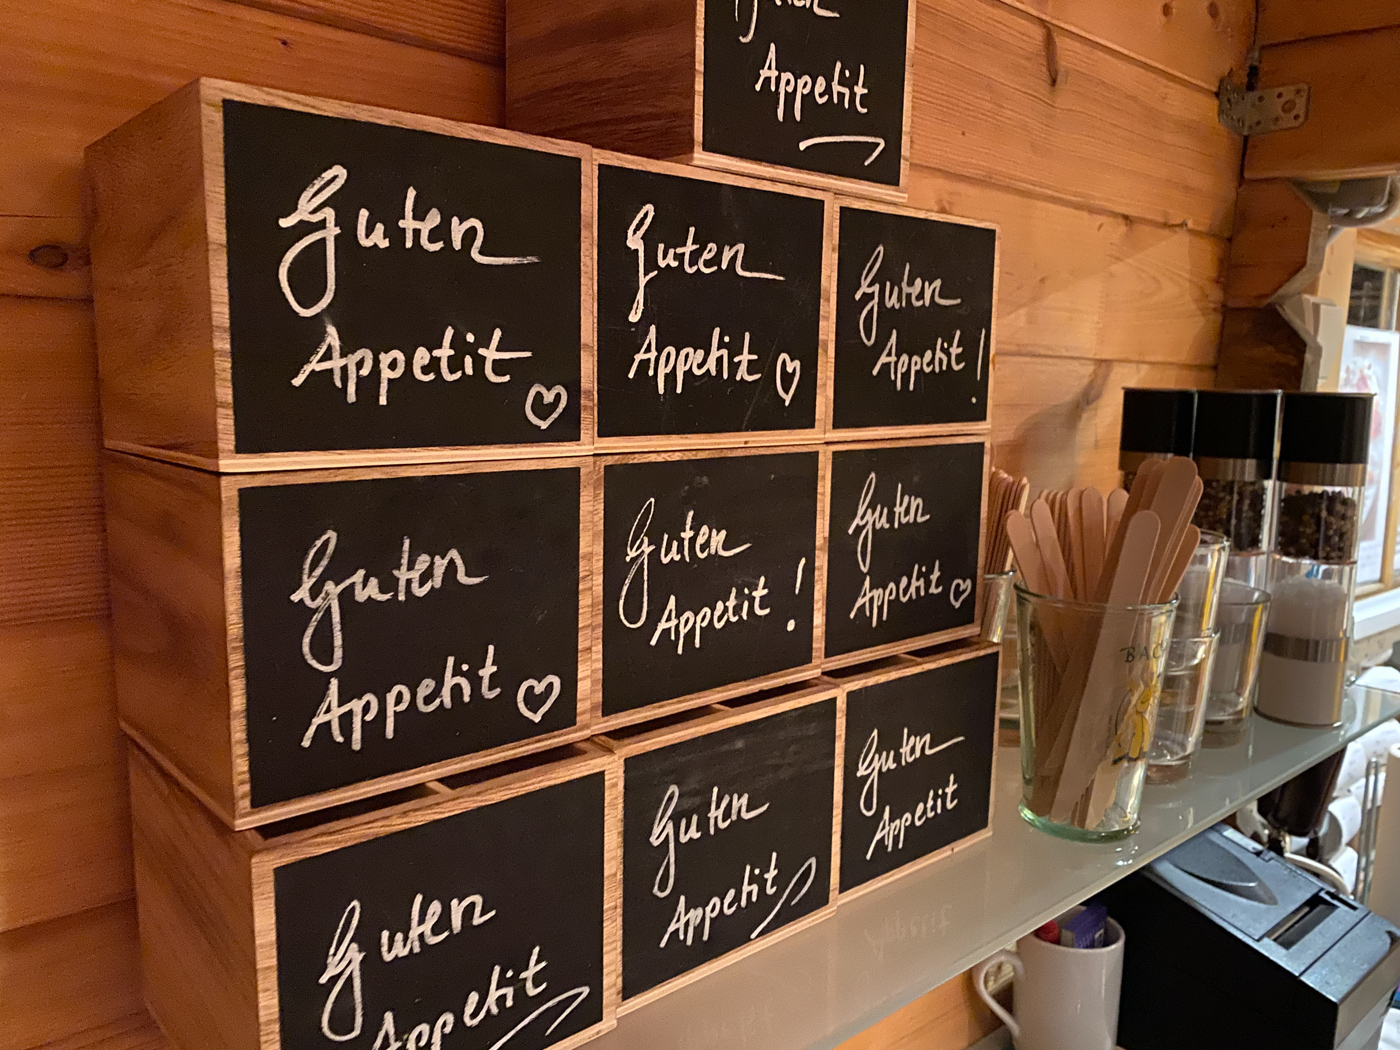 Guten
Appetit
Guten
Appetit ♡
Guten
Appetit ♡
Guten
Appetit !
Guten
Appetit ♡
Guten
Appetit !
Guten
Appetit ♡
Guten
Appetit
Guten
Appetit
Guten
Appetit